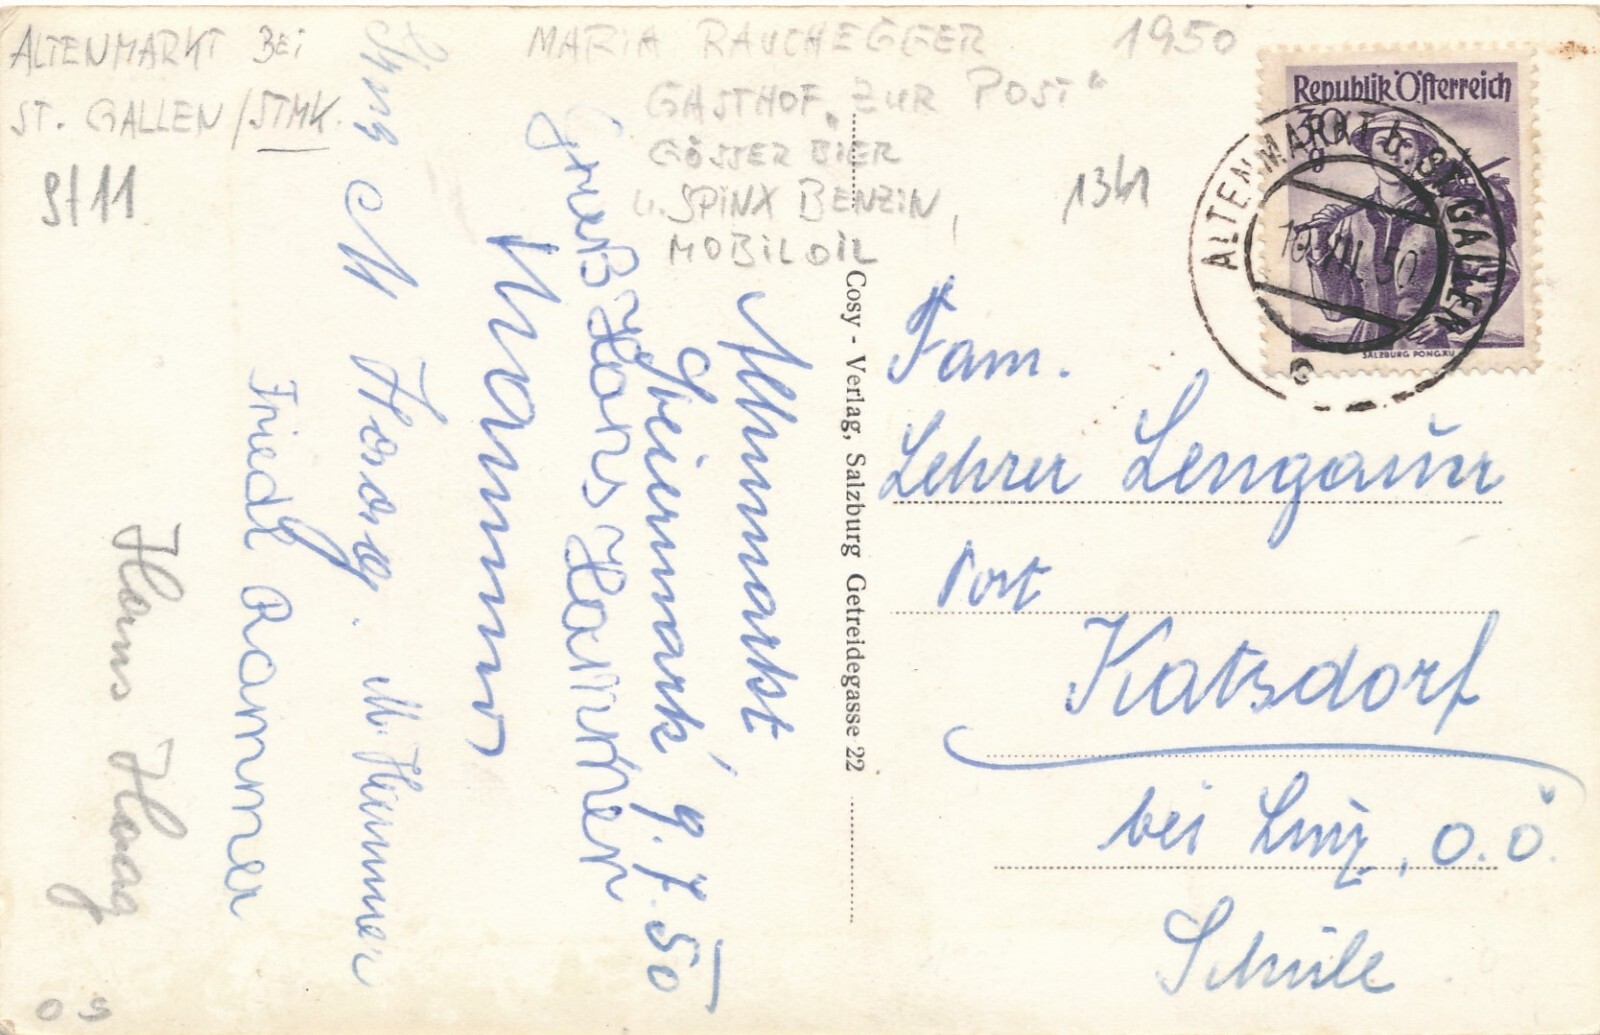 ALTENMARKT BEI
ST. GALLEN/STMK.
9/11
MARIA RAUCHEGGER
GASTHOF „ZUR POST“
GÖSSER BIER
u. SPINX BENZIN,
MOBILOIL
1950
1341
Republik Österreich
30 g
SALZBURG PONGAU
ALTENMARKT b. ST. GALLEN
50
Altenmarkt
Steiermark, 9.7.50
Gruß Hans Hammer
Hammer
Haag. M. Hammer
Friedl Rammer
Hans Haag
Cosy - Verlag, Salzburg Getreidegasse 22
Fam.
Lehrer Lengauer
Post
Katsdorf
bei Linz, O.Ö.
Schule
0 9